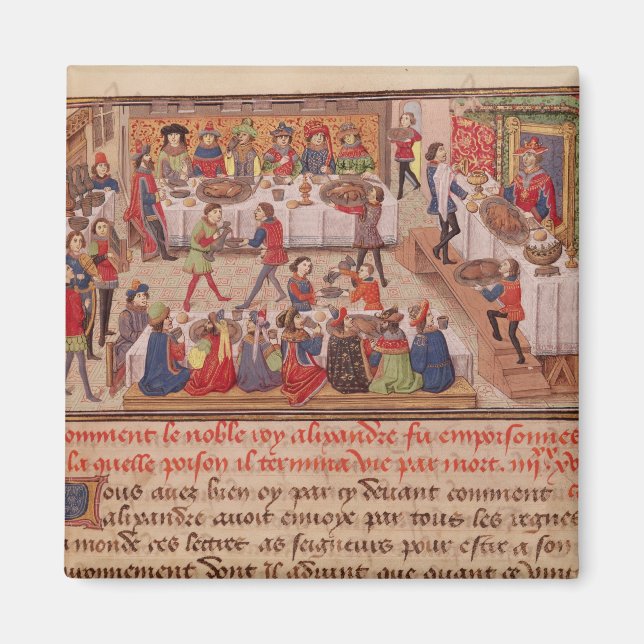 comment le noble roy alixandre fu emporsonnes
la quelle poison il termina vie par mort. iiijxx xv
Vous avez bien oy par cy devant comment
alixandre avoit envoye par tous les regnes
monde ces lettres as seigneurs pour estre a son
couronnement dont il advint que quant ce vint